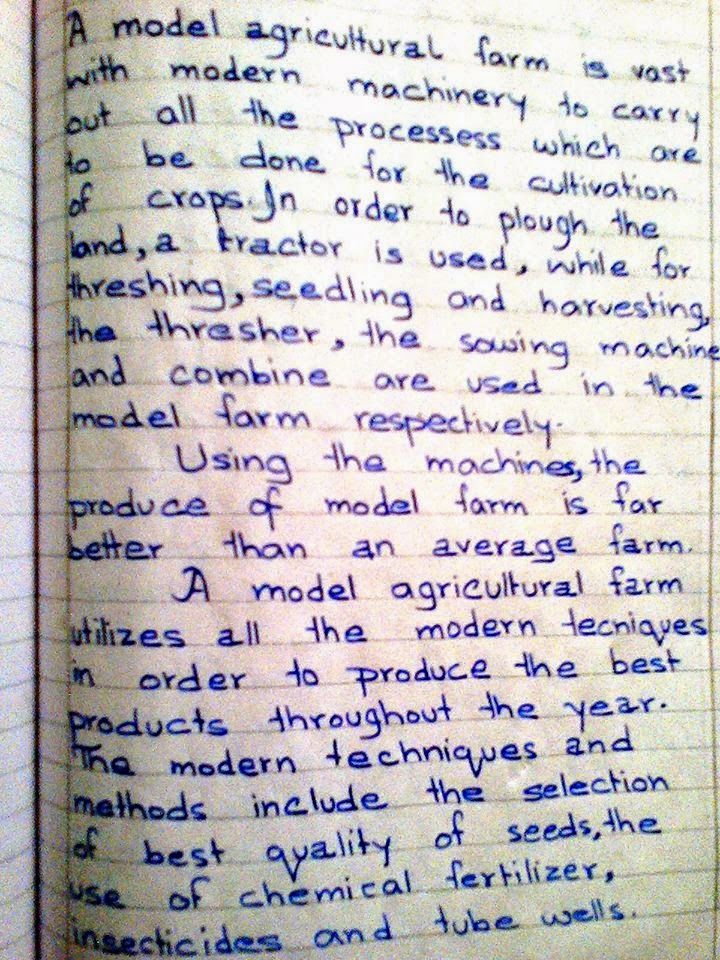 A model agricultural farm is vast
with modern machinery to carry
out all the processess which are
to be done for the cultivation
of crops. In order to plough the
land, a tractor is used, while for
threshing, seedling and harvesting,
the thresher, the sowing machine
and combine are used in the
model farm respectively.
Using the machines, the
produce of model farm is far
better than an average farm.
A model agricultural farm
utilizes all the modern tecniques
in order to produce the best
products throughout the year.
The modern techniques and
methods include the selection
of best quality of seeds, the
use of chemical fertilizer,
insecticides and tube wells.